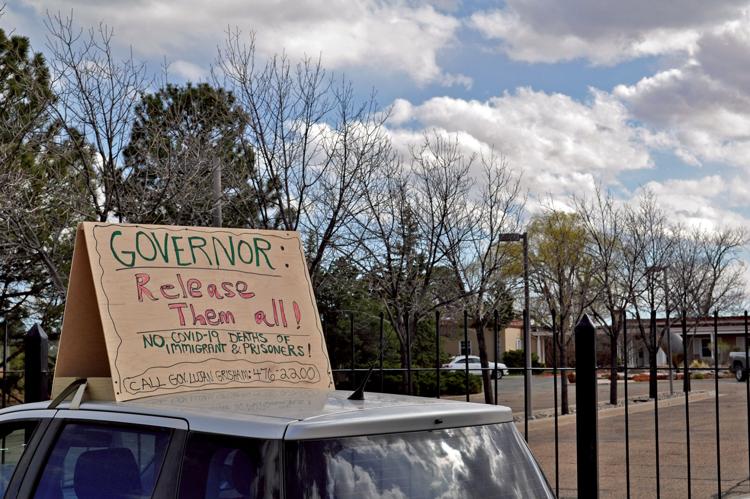 GOVERNOR:
Release
Them all!
NO COVID-19 DEATHS OF
IMMIGRANT & PRISONERS!
CALL GOV. LUJAN GRISHAM: 476-2200